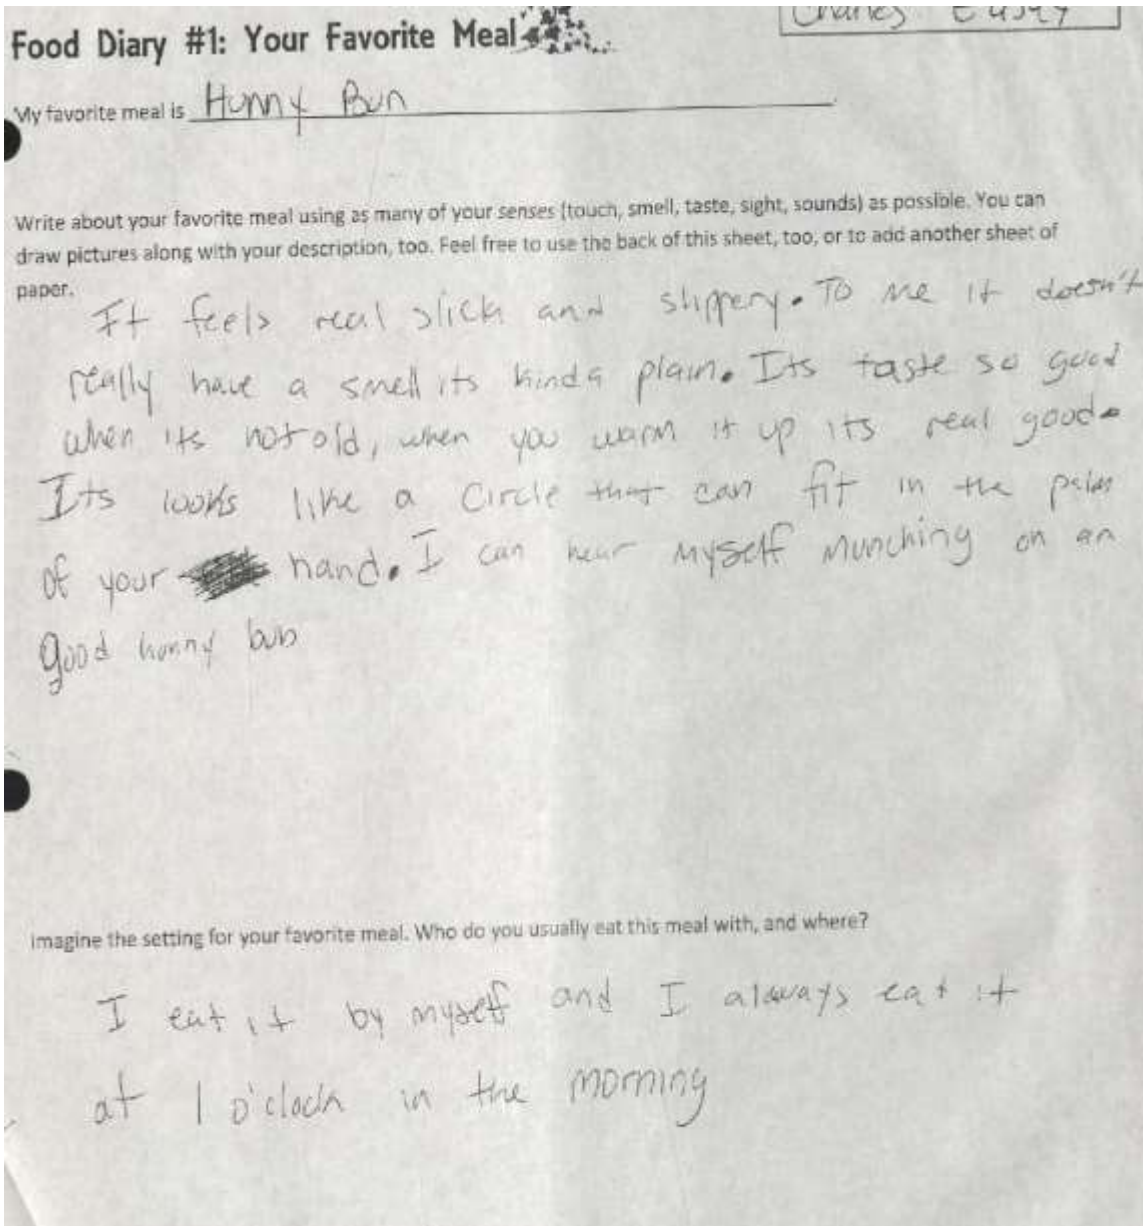 Charles
Food Diary #1: Your Favorite Meal
My favorite meal is Hunny Bun
Write about your favorite meal using as many of your senses (touch, smell, taste, sight, sounds) as possible. You can
draw pictures along with your description, too. Feel free to use the back of this sheet, too, or to add another sheet of
paper.
It feels real slick and slippery. To me it doesn't
really have a smell its kinda plain. Its taste so good
when its not old, when you warm it up its real good.
Its looks like a circle that can fit in the palm
of your hand. I can hear myself munching on an
good hunny bun
Imagine the setting for your favorite meal. Who do you usually eat this meal with, and where?
I eat it by myself and I always eat it
at 1 o'clock in the morning